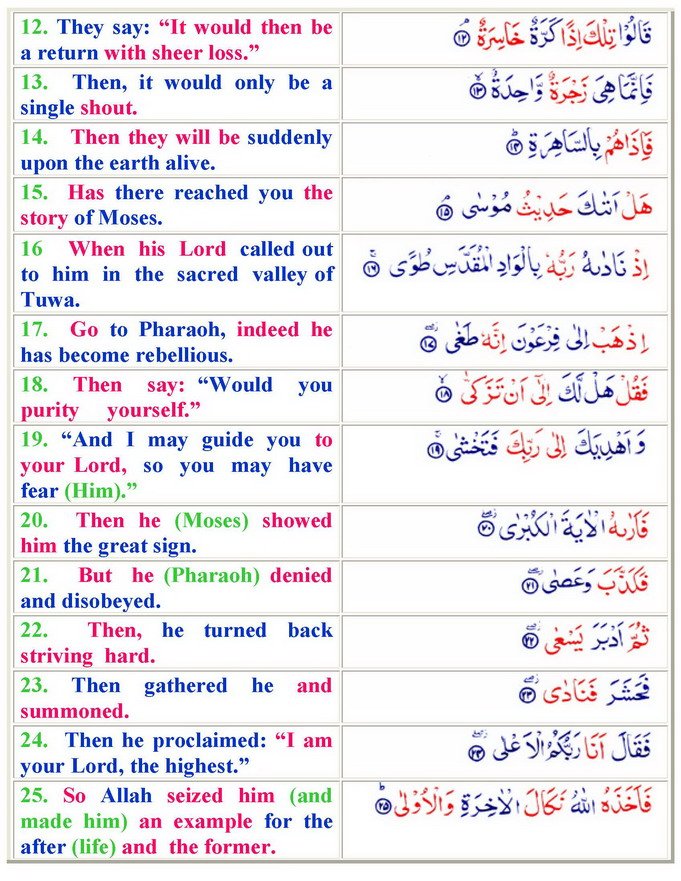 12. They say: “It would then be
a return with sheer loss.”
قَالُوۡا تِلۡكَ اِذًا كَرَّةٌ خَاسِرَةٌ ۘ‏ ﴿۱۲﴾
13. Then, it would only be a
single shout.
فَاِنَّمَا هِىَ زَجۡرَةٌ وَّاحِدَةٌ ۙ‏ ﴿۱۳﴾
14. Then they will be suddenly
upon the earth alive.
فَاِذَا هُمۡ بِالسَّاهِرَةِ ؕ‏ ﴿۱۴﴾
15. Has there reached you the
story of Moses.
هَلۡ اَتٰٮكَ حَدِيۡثُ مُوۡسٰى ۘ‏ ﴿۱۵﴾
16 When his Lord called out
to him in the sacred valley of
Tuwa.
اِذۡ نَادٰٮهُ رَبُّهٗ بِالۡوَادِ الۡمُقَدَّسِ طُوًى ۚ‏ ﴿۱۶﴾
17. Go to Pharaoh, indeed he
has become rebellious.
اِذۡهَبۡ اِلٰى فِرۡعَوۡنَ اِنَّهٗ طَغٰى ۖ‏ ﴿۱۷﴾
18. Then say: “Would you
purity yourself.”
فَقُلۡ هَلۡ لَّكَ اِلٰٓى اَنۡ تَزَكّٰى ۙ‏ ﴿۱۸﴾
19. “And I may guide you to
your Lord, so you may have
fear (Him).”
وَاَهۡدِيَكَ اِلٰى رَبِّكَ فَتَخۡشٰى ۚ‏ ﴿۱۹﴾
20. Then he (Moses) showed
him the great sign.
فَاَرٰٮهُ الۡاٰيَةَ الۡكُبۡرٰى ۖ‏ ﴿۲۰﴾
21. But he (Pharaoh) denied
and disobeyed.
فَكَذَّبَ وَعَصٰى ۖ‏ ﴿۲۱﴾
22. Then, he turned back
striving hard.
ثُمَّ اَدۡبَرَ يَسۡعٰى ۖ‏ ﴿۲۲﴾
23. Then gathered he and
summoned.
فَحَشَرَ فَنَادٰى ۖ‏ ﴿۲۳﴾
24. Then he proclaimed: “I am
your Lord, the highest.”
فَقَالَ اَنَا رَبُّكُمُ الۡاَعۡلٰى ۖ‏ ﴿۲۴﴾
25. So Allah seized him (and
made him) an example for the
after (life) and the former.
فَاَخَذَهُ اللّٰهُ نَكَالَ الۡاٰخِرَةِ وَالۡاُوۡلٰى ؕ‏ ﴿۲۵﴾